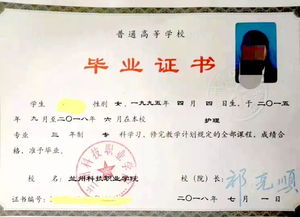 普通高等学校
毕业证书
学生 性别 女，一九九五年 四月 四日生，于二〇一五
年 九月至二〇一八年 六月在本校 护理
专业 三年制 专科学习，修完教学计划规定的全部课程，成绩合
格，准予毕业。
校 名：兰州科技职业学院 校（院）长：
证书编号： 二〇一八年 七月 一日